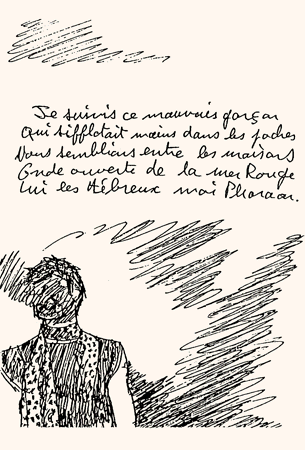 Je suivis ce mauvais garçon
Qui sifflotait mains dans les poches
Nous semblions entre les maisons
Onde ouverte de la mer Rouge
Lui les Hébreux moi Pharaon.